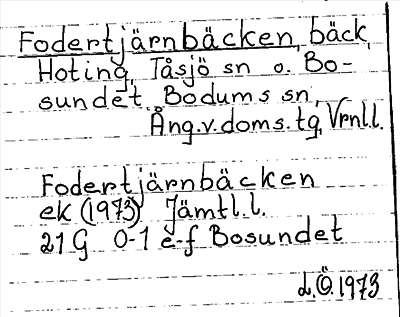 Fodertjärnbäcken, bäck,
Hoting, Tåsjö sn o. Bo-
sundet Bodums sn,
Ång.v.doms.tg, Vrnl.l.
Fodertjärnbäcken
ek (1973) Jämtl.l.
21 G 0-1 e-f Bosundet
d.Ö.1973